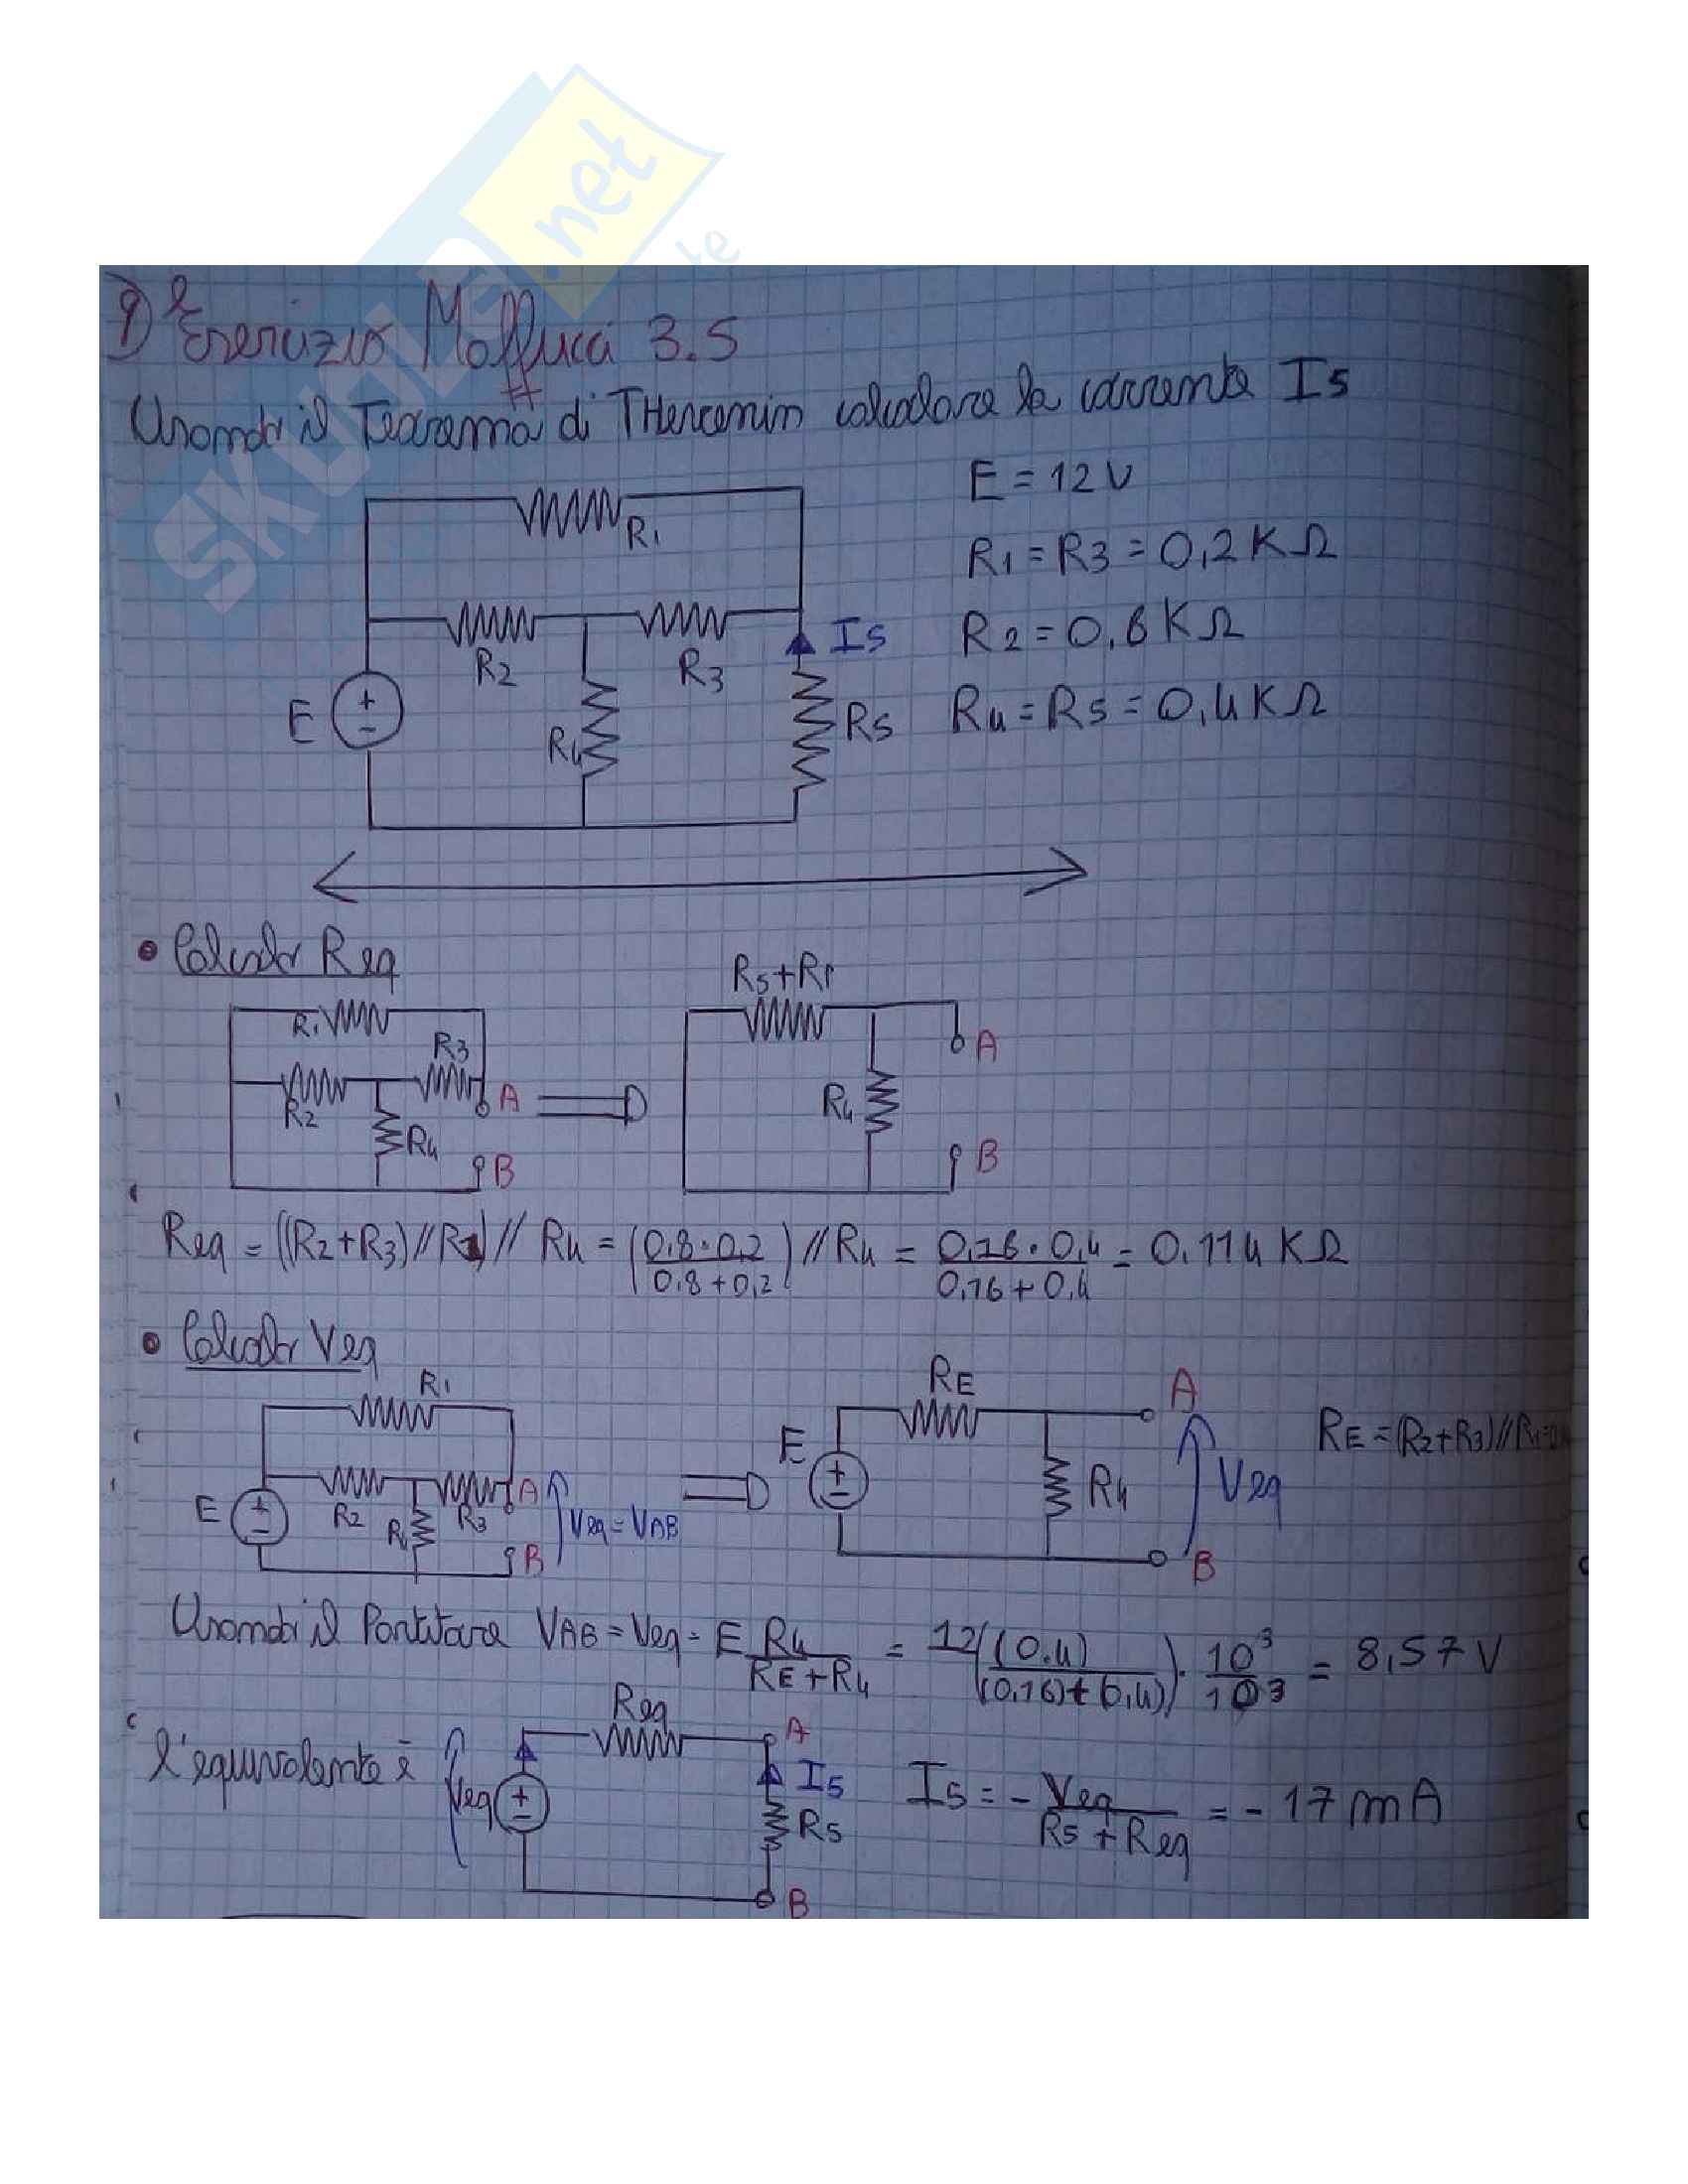 SKUOLA.net
9) Esercizio Maffucci 3.5
Usando il Teorema di THevenin calcolare la corrente I5
E = 12 V
R1 = R3 = 0,2 KΩ
R2 = 0,6 KΩ
R4 = R5 = 0,4 KΩ
R1
R2
R3
I5
E
R4
R5
• Calcolo Req
R1
R3
R2
A
R4
B
R5+R1
A
R4
B
Req = ((R2+R3)//R1)// R4 = (0.8·0,2 / 0.8+0,2) //R4 = 0,16·0,4 / 0,16+0,4 = 0,114 KΩ
• Calcolo Veq
R1
E
R2
R3
A
R4
Veq=VAB
B
RE
A
E
R4
Veq
B
RE=(R2+R3)//R1
Usando il Partitore VAB=Veq= E R4 / RE+R4 = 12((0.4) / (0,16)+0,4))· 10³ / 10³ = 8,57 V
l'equivalente è
Veq
Req
A
I5
R5
B
I5 = - Veq / R5+Req = - 17 mA